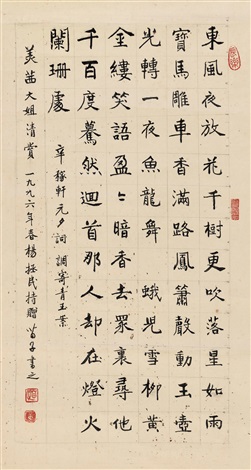 東風夜放花千樹更吹落星如雨
寶馬雕車香滿路鳳簫聲動玉壺
光轉一夜魚龍舞 蛾兒雪柳黃
金縷笑語盈〻暗香去眾裏尋他
千百度驀然迴首那人却在燈火
闌珊處
辛稼軒元夕詞調寄青玉案
大姐清賞一九九六年春楊拯民持贈 苗子書之